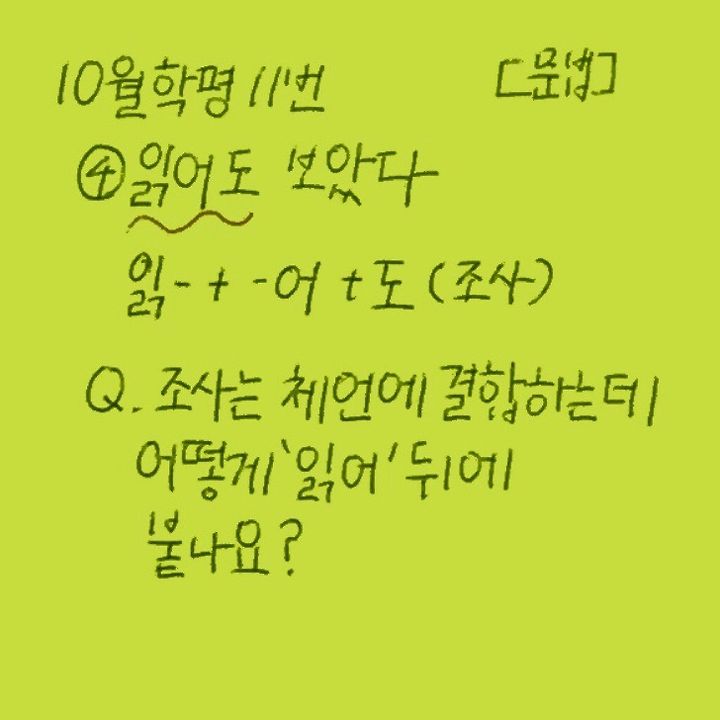 10월학평 11번 [문법]
④읽어도 보았다
읽- + -어 + 도 (조사)
Q. 조사는 체언에 결합하는데
어떻게 '읽어' 뒤에
붙나요?